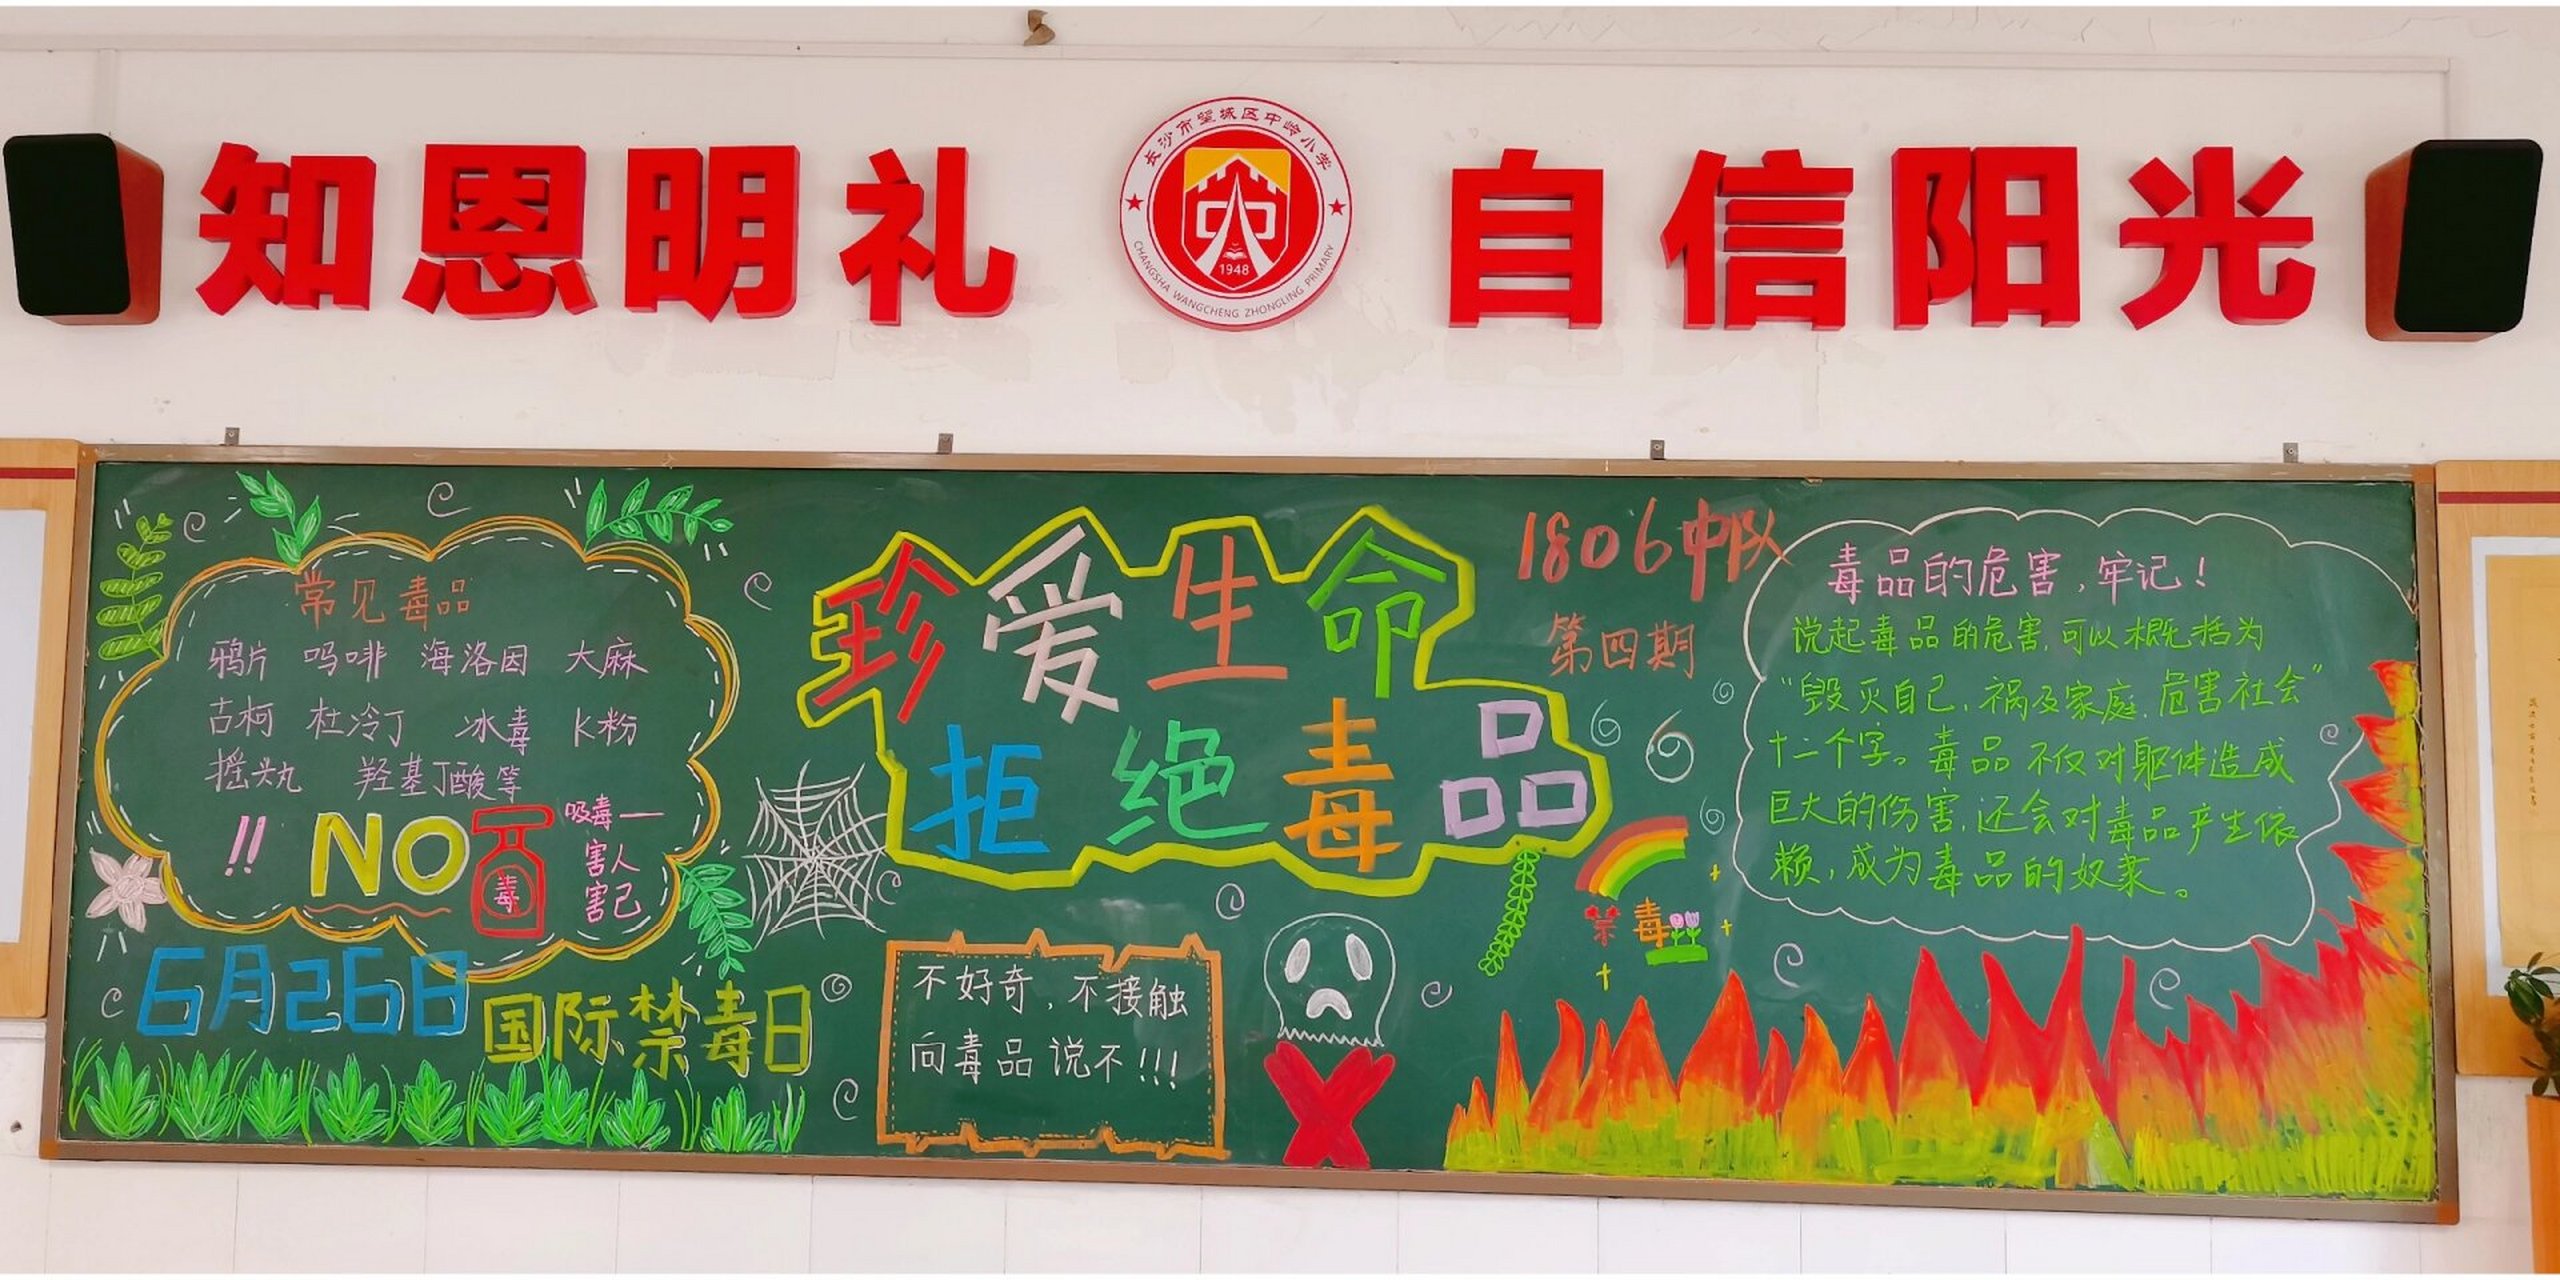 知恩明礼
长沙市望城区中岭小学
1948
CHANGSHA WANGCHENG ZHONGLING PRIMARY
自信阳光
常见毒品
鸦片 吗啡 海洛因 大麻
古柯 杜冷丁 冰毒 K粉
摇头丸 羟基丁酸等
!! NO
毒
吸毒一
害人
害己
6月26日
国际禁毒日
珍爱生命
拒绝毒品
不好奇，不接触
向毒品说不!!!
X
1806中队
第四期
禁毒
毒品的危害，牢记！
说起毒品的危害，可以概括为
“毁灭自己，祸及家庭，危害社会”
十二个字。毒品不仅对躯体造成
巨大的伤害，还会对毒品产生依
赖，成为毒品的奴隶。